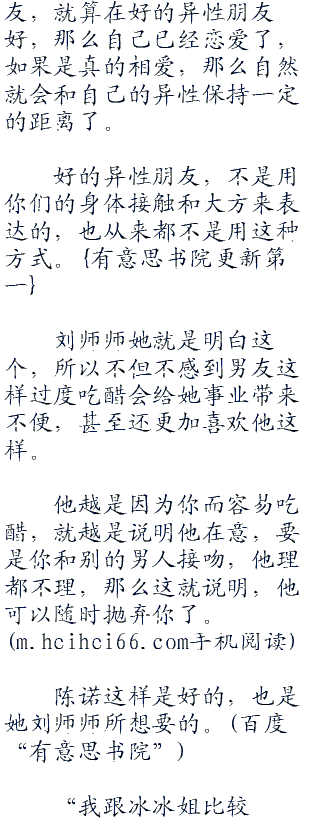 友，就算在好的异性朋友
好，那么自己已经恋爱了，
如果是真的相爱，那么自然
就会和自己的异性保持一定
的距离了。
好的异性朋友，不是用
你们的身体接触和大方来表
达的，也从来都不是用这种
方式。{有意思书院更新第
一}
刘师师她就是明白这
个，所以不但不感到男友这
样过度吃醋会给她事业带来
不便，甚至还更加喜欢他这
样。
他越是因为你而容易吃
醋，就越是说明他在意，要
是你和别的男人接吻，他理
都不理，那么这就说明，他
可以随时抛弃你了。
(m.hcihci66.com手机阅读)
陈诺这样是好的，也是
她刘师师所想要的。(百度
“有意思书院”)
“我跟冰冰姐比较